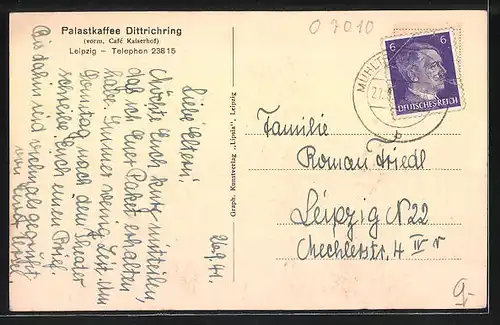 Palastkaffee Dittrichring
(vorm. Café Kaiserhof)
Leipzig – Telephon 23815
O 7010
26.9.41.
Liebe Eltern!
Möchte Euch kurz mitteilen,
daß ich Euer Paket erhalten
habe. Immer wenig Zeit. Am
Sonntag nach dem Theater
schreibe Euch einen Brief.
Bis dahin seid vielmals gegrüßt
von
Graph. Kunstverlag „Lipsia", Leipzig
6
6
DEUTSCHES REICH
MÜHLT
b
Familie
Roman Friedl
Leipzig N 22
Mechlerstr. 4 IV r
9.-